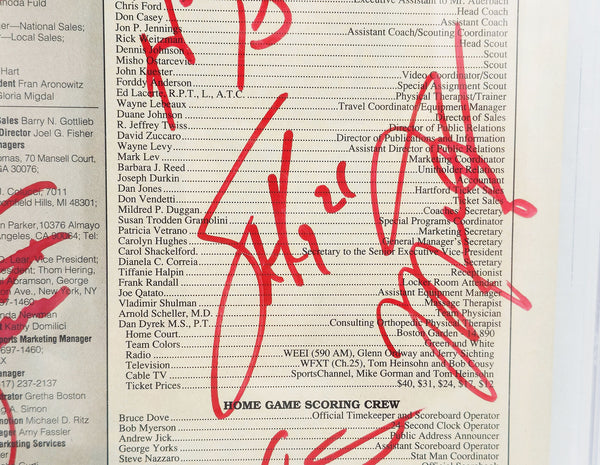 noda Fuld
er—National Sales;
—Local Sales;
Hart
dent Fran Aronowitz
Gloria Migdal
Sales Barry N. Gottlieb
Director Joel G. Fisher
nagers
omas, 70 Mansell Court,
GA;
7011
oomfield Hills, MI 48301;
n Parker, 10376 Almayo
Angeles, CA 90064; Tel:
D. Leaf, Vice President;
President; Thom Hering,
Abramson, George
on Ave., New York, NY
97-1460
nda Newman
d Kathy Domilici
ports Marketing Manager
97-1460;
EX
MA
617) 237-2137
rator Gretha Boston
A. Simon
motion Michael D. Ritz
ger Amy Fassler
arketing Services
er
Executive Assistant to Mr. Auerbach
Chris Ford Head Coach
Don Casey Assistant Coach
Jon P. Jennings Assistant Coach/Scouting Coordinator
Rick Weitzman Head Scout
Dennis Johnson Scout
Misho Ostarcevic Scout
John Kuester Video Coordinator/Scout
Forddy Anderson Special Assignment Scout
Ed Lacerte, R.P.T., L., A.T.C. Physical Therapist/Trainer
Wayne Lebeaux Travel Coordinator/Equipment Manager
Duane Johnson Director of Sales
R. Jeffrey Twiss Director of Public Relations
David Zuccaro Director of Publications and Information
Wayne Levy Assistant Director of Public Relations
Mark Lev Marketing Coordinator
Barbara J. Reed Relations
Joseph Durkin Accountant
Dan Jones Hartford Ticket Sales
Don Vendetti Ticket Sales
Mildred P. Duggan Coaches Secretary
Susan Trodden Gramolini Special Programs Coordinator
Patricia Vetrano Marketing Secretary
Carolyn Hughes General Manager's Secretary
Carol Shackelford Secretary to the Senior Executive Vice-President
Dianela C. Correia Secretary
Tiffanie Halpin Receptionist
Frank Randall Locker Room Attendant
Joe Qatato Assistant Equipment Manager
Vladimir Shulman Massage Therapist
Arnold Scheller, M.D. Team Physician
Dan Dyrek M.S., P.T. Consulting Orthopedic Physical Therapist
Home Court Boston Garden 14,890
Team Colors Green and White
Radio WEEI (590 AM), Glenn Ordway and
Television WFXT (Ch. 25), Tom Heinsohn and Bob
Cable TV SportsChannel, Mike Gorman and Tom Heinsohn
Ticket Prices $40, $31, $24, $17, $12
HOME GAME SCORING CREW
Bruce Dove Official Timekeeper and Scoreboard Operator
Bob Myerson 24 Second Clock Operator
Andrew Jick Public Address Announcer
George Yorks Assistant Scoreboard Operator
Steve Nazzaro Stat Man Coordinator
21